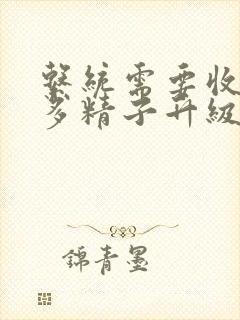 繫統需要收
多精子升級
錦青墨